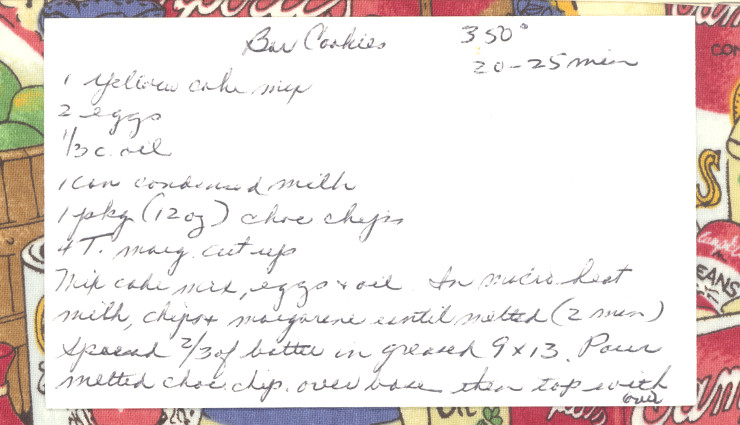 Bar Cookies 350°
20-25 min
1 Yellow cake mix
2 eggs
1/3 c. oil
1 can condensed milk
1 pkg (12 oz) choc chips
4 T. marg. cut up
Mix cake mix, eggs + oil. In micro heat
milk, chips + margarine until melted (2 min)
Spread 2/3 of batter in greased 9 x 13. Pour
melted choc. chip. over base then top with
over
CON
S
Campbell's
EANS
am